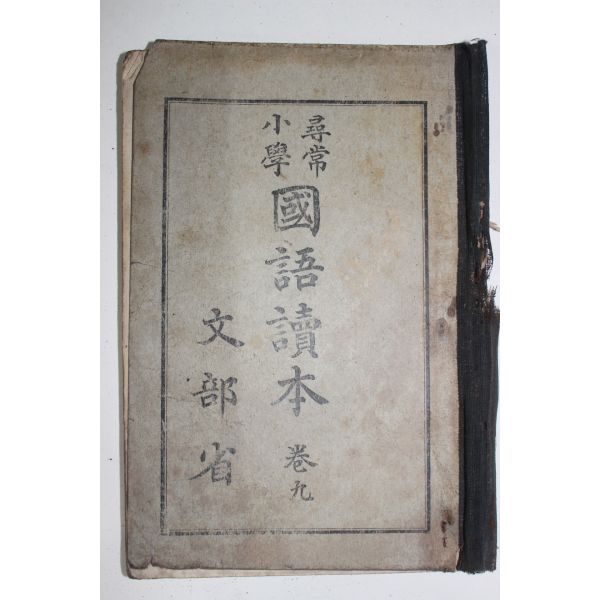 尋常
小學
國語讀本 卷九
文部省